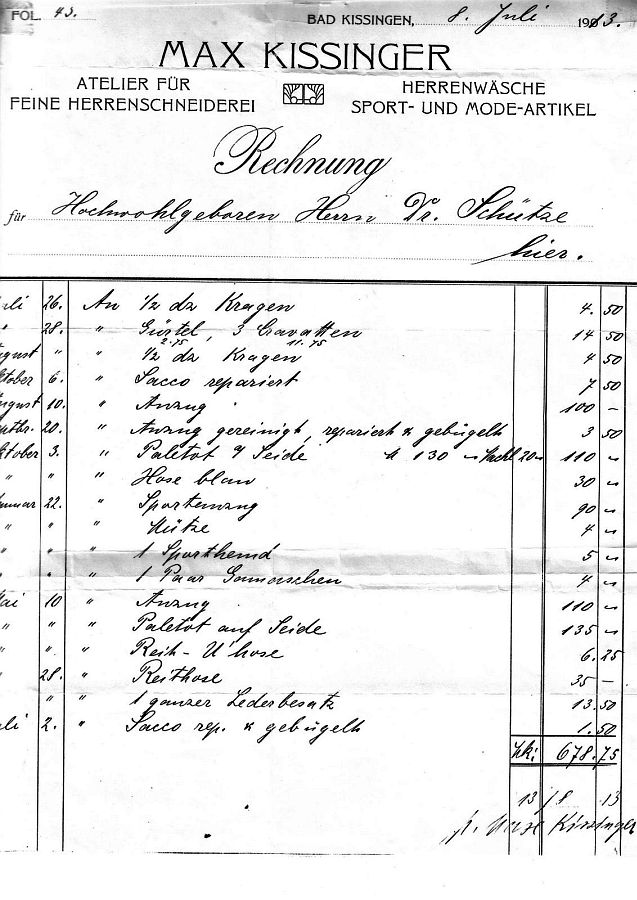 FOL. 43.
BAD KISSINGEN, 8. Juli 1913.
MAX KISSINGER
ATELIER FÜR
FEINE HERRENSCHNEIDEREI
HERRENWÄSCHE
SPORT- UND MODE-ARTIKEL
Rechnung
für Hochwohlgeboren Herrn Dr. Schütze
hier.
uli 26. An 1/2 dz Kragen 4.50
" 28. " Gürtel, 3 Cravatten 14 50
2.75 11.75
ugust " " 1/2 dz Kragen 4 50
ktober 6. " Sacco repariert 7 50
ugust 10. " Anzug 100 –
ptbr. 20. " Anzug gereinigt, repariert & gebügelt 3 50
ktober 3. " Paletot a/ Seide M 130 " Nachl 20 " 110 "
" " " Hose blau 30 "
anuar 22. " Sportanzug 90 "
" " " Mütze 4 "
" " " 1 Sporthemd 5 "
" " " 1 Paar Gamaschen 4 "
ai 10 " Anzug 110 "
" " " Paletot auf Seide 135 "
" " " Reith-U'hose 6.25
" 28. " Reithose 35 –
" " 1 ganzer Lederbesatz 13.50
uli 2. " Sacco rep. & gebügelt 1.50
Mk: 678.75
13/8 13
Max Kissinger